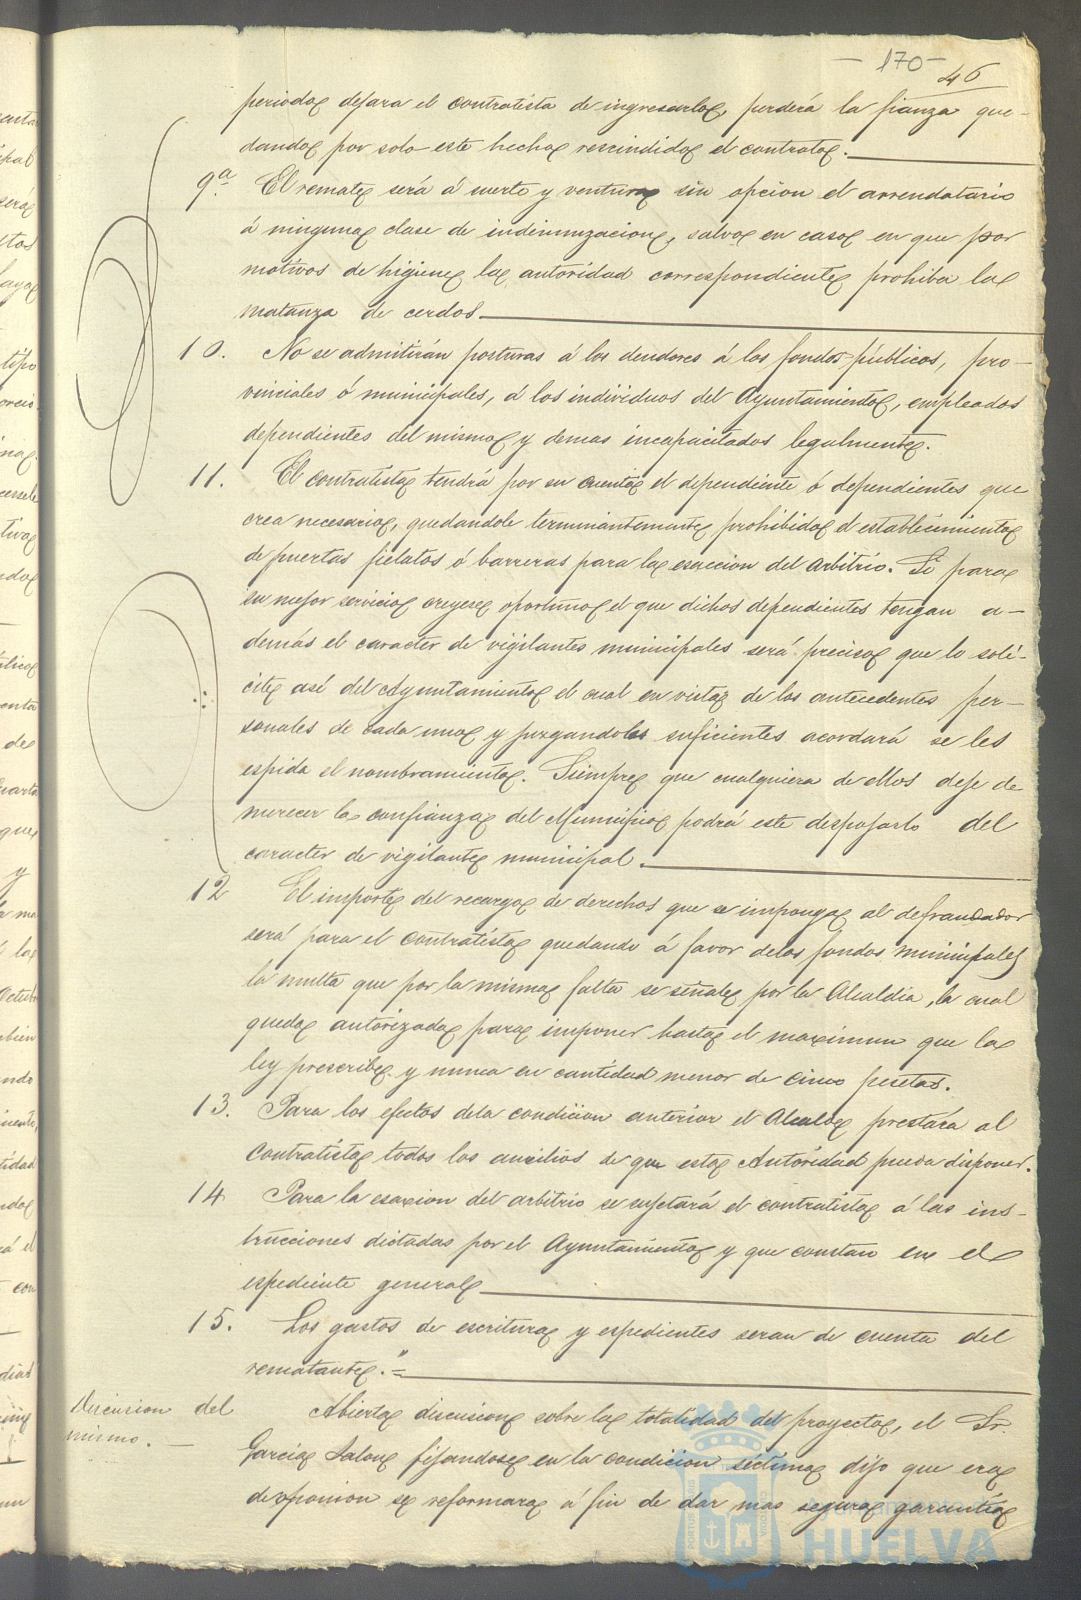 - 170 -
46
periodo dejara el contratista de ingresarlo, perderá la fianza que-
dando por solo este hecho rescindido el contrato.
9ª El remate será á suerte y ventura sin opcion el arrendatario
á ninguna clase de indemnizacion, salvo en caso en que por
motivos de higiene la autoridad correspondiente prohiba la
matanza de cerdos.
10. No se admitirán posturas á los deudores á los fondos públicos, pro-
vinciales ó municipales, á los individuos del Ayuntamiento, empleados
dependientes del mismo y demas incapacitados legalmente.
11. El contratista tendrá por su cuenta el dependiente ó dependientes que
crea necesario, quedandole terminantemente prohibido el establecimiento
de puertas fielatos ó barreras para la esaccion del arbitrio. Si para
su mejor servicio creyese oportuno el que dichos dependientes tengan a-
demás el caracter de vigilantes municipales será preciso que lo soli-
cite asi del Ayuntamiento el cual en vista de los antecedentes per-
sonales de cada uno y juzgandolos suficientes acordará se les
espida el nombramiento. Siempre que cualquiera de ellos deje de
merecer la confianza del Municipio podrá este despojarlo del
caracter de vigilante municipal.
12 El importe del recargo de derechos que se imponga al defraudador
será para el contratista quedando á favor de los fondos municipales
la multa que por la misma falta se señale por la Alcaldia, la cual
queda autorizada para imponer hasta el maximun que la
ley prescribe y nunca en cantidad menor de cinco pesetas.
13. Para los efectos de la condicion anterior el Alcalde prestará al
contratista todos los ausilios de que esta Autoridad pueda disponer.
14 Para la esaxion del arbitrio se sujetará el contratista á las ins-
trucciones dictadas por el Ayuntamiento y que constan en el
espediente general
15. Los gastos de escritura y espedientes seran de cuenta del
rematante."=
Discusion del
mismo.
Abierta discusion sobre la totalidad del proyecto, el Sr.
Garcia Jalon fijandose en la condicion séctima dijo que era
de oponion se reformara á fin de dar mas segura garantía
Ayuntamiento de
HUELVA